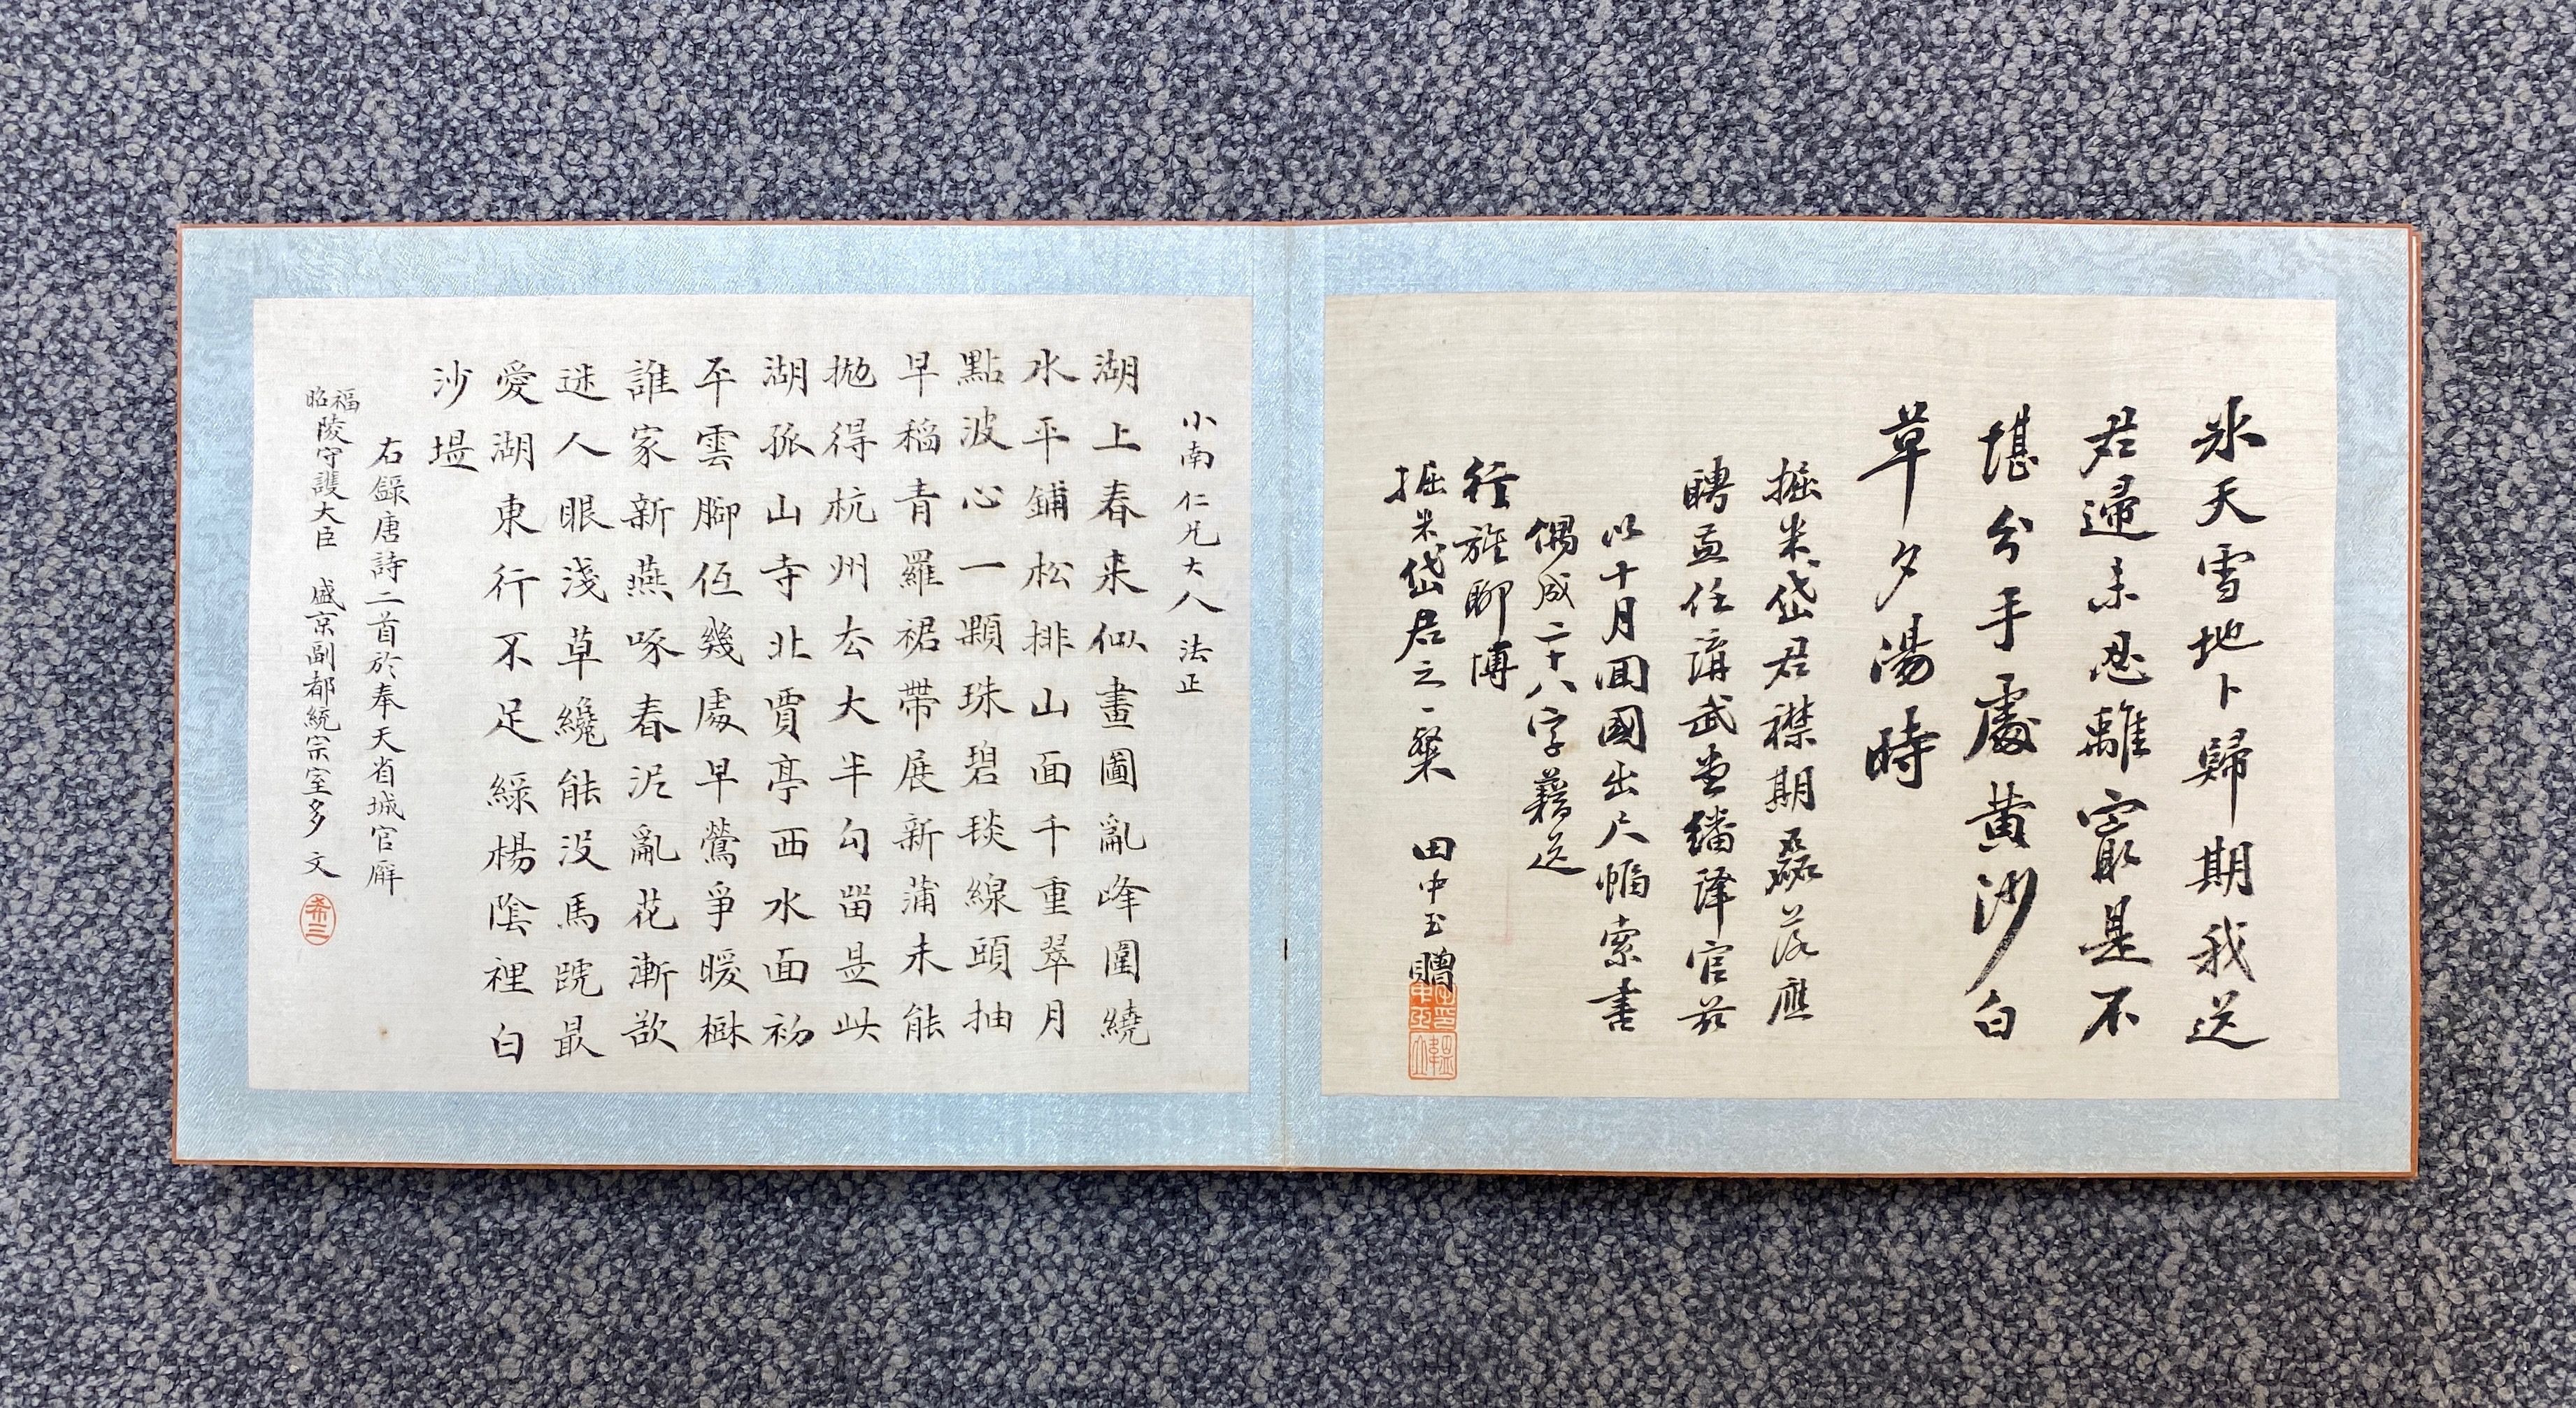 冰天雪地卜歸期我送
君還未忍離寂是不
堪分手處黃沙白
草夕湯時
掘米岱君襟期磊落應
聘孟任講武堂繙譯官茲
以十月回國出尺幅索書
偶成二十八字藉送
行旌聊博
掘米岱君之一粲 田中玉贈
小南仁兄大人 法正
湖上春来似畫圖亂峰圍繞
水平鋪松排山面千重翠月
點波心一顆珠碧毯線頭抽
早稻青羅裙帶展新蒲未能
拋得杭州去大半勾留是此
湖孤山寺北賈亭西水面初
平雲腳低幾處早鶯爭暖樹
誰家新燕啄春泥亂花漸欲
迷人眼淺草纔能沒馬蹏最
愛湖東行不足綠楊陰裡白
沙堤
右錄唐詩二首於奉天省城官廨
福昭陵守護大臣 盛京副都統宗室多文
希三